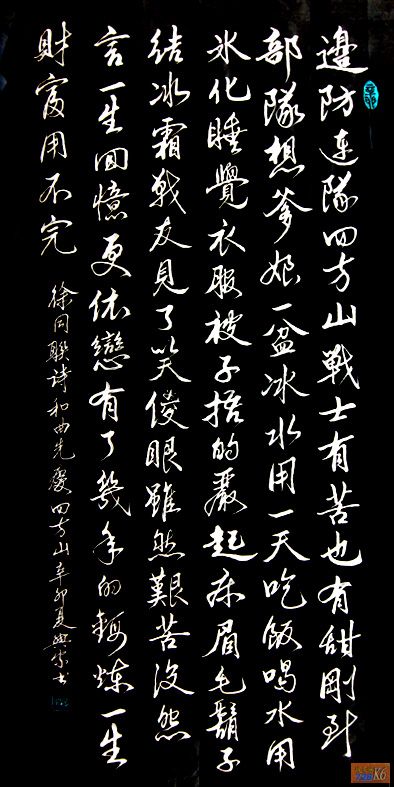 邊防連隊四方山戰士有苦也有甜剛到
部隊想爹娘一盆冰水用一天吃飯喝水用
氷化睡覺衣服被子捂的嚴起床眉毛鬍子
结冰霜戰友見了笑傻眼雖然艱苦没怨
言一生回憶更依戀有了幾年的鍛炼一生
財富用不完
徐同联詩和曲先慶四方山辛卯夏
K6